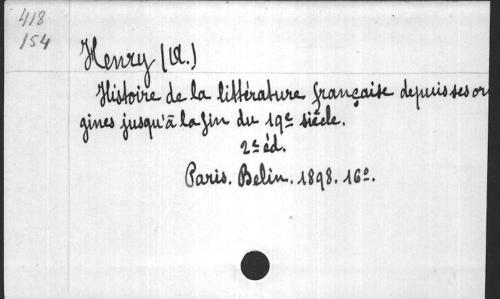 418
154
Henry (A.)
Histoire de la littérature française depuis ses ori
gines jusqu'à la fin du 19e siècle.
2e éd.
Paris. Belin. 1898. 16o.